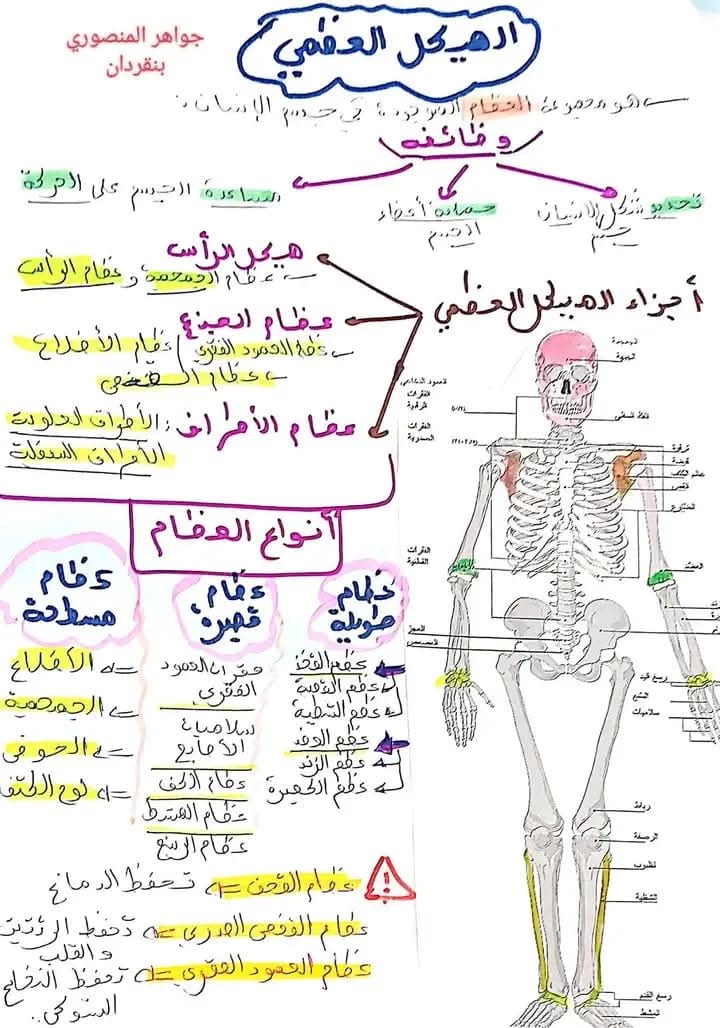 جواهر المنصوري
بنقردان
الهيكل العظمي
هو مجموعة العظام الموجودة في جسم الإنسان:
وظائفه
تحديد شكل الإنسان
جسم
حماية أعضاء
الجسم
مساعدة الجسم على الحركة
أجزاء الهيكل العظمي
هيكل الرأس
عظام الجمجمة و عظام الرأس
عظام الجذع
عظام العمود الفقري / عظام الأضلاع
عظام الأطراف: الأطراف العلوية
الأطراف السفلية
أنواع العظام
عظام
طويلة
عظم الفخذ
عظم القصبة
عظم الشظية
عظم العضد
عظم الزند
عظم الكعبرة
عظام
قصيرة
فقرات العمود
الفقري
سلاميات
الأصابع
عظام الكف
عظام المشط
عظام الرسغ
عظام
مسطحة
الأضلاع
الجمجمة
الحوض
لوح الكتف
عظام القحف = تحفظ الدماغ
عظام القفص الصدري = تحفظ الرئتين
و القلب
عظام العمود الفقري = تحفظ النخاع
الشوكي..
الجمجمة
الفقرات
الرقبية
الفقرات
الصدرية
الفقرات
القطنية
العجز
العصعص
ترقوة
العضد
رسغ اليد
سلاميات
رباط
الرضفة
ظنبوب
الشظية
رسغ القدم
المشط